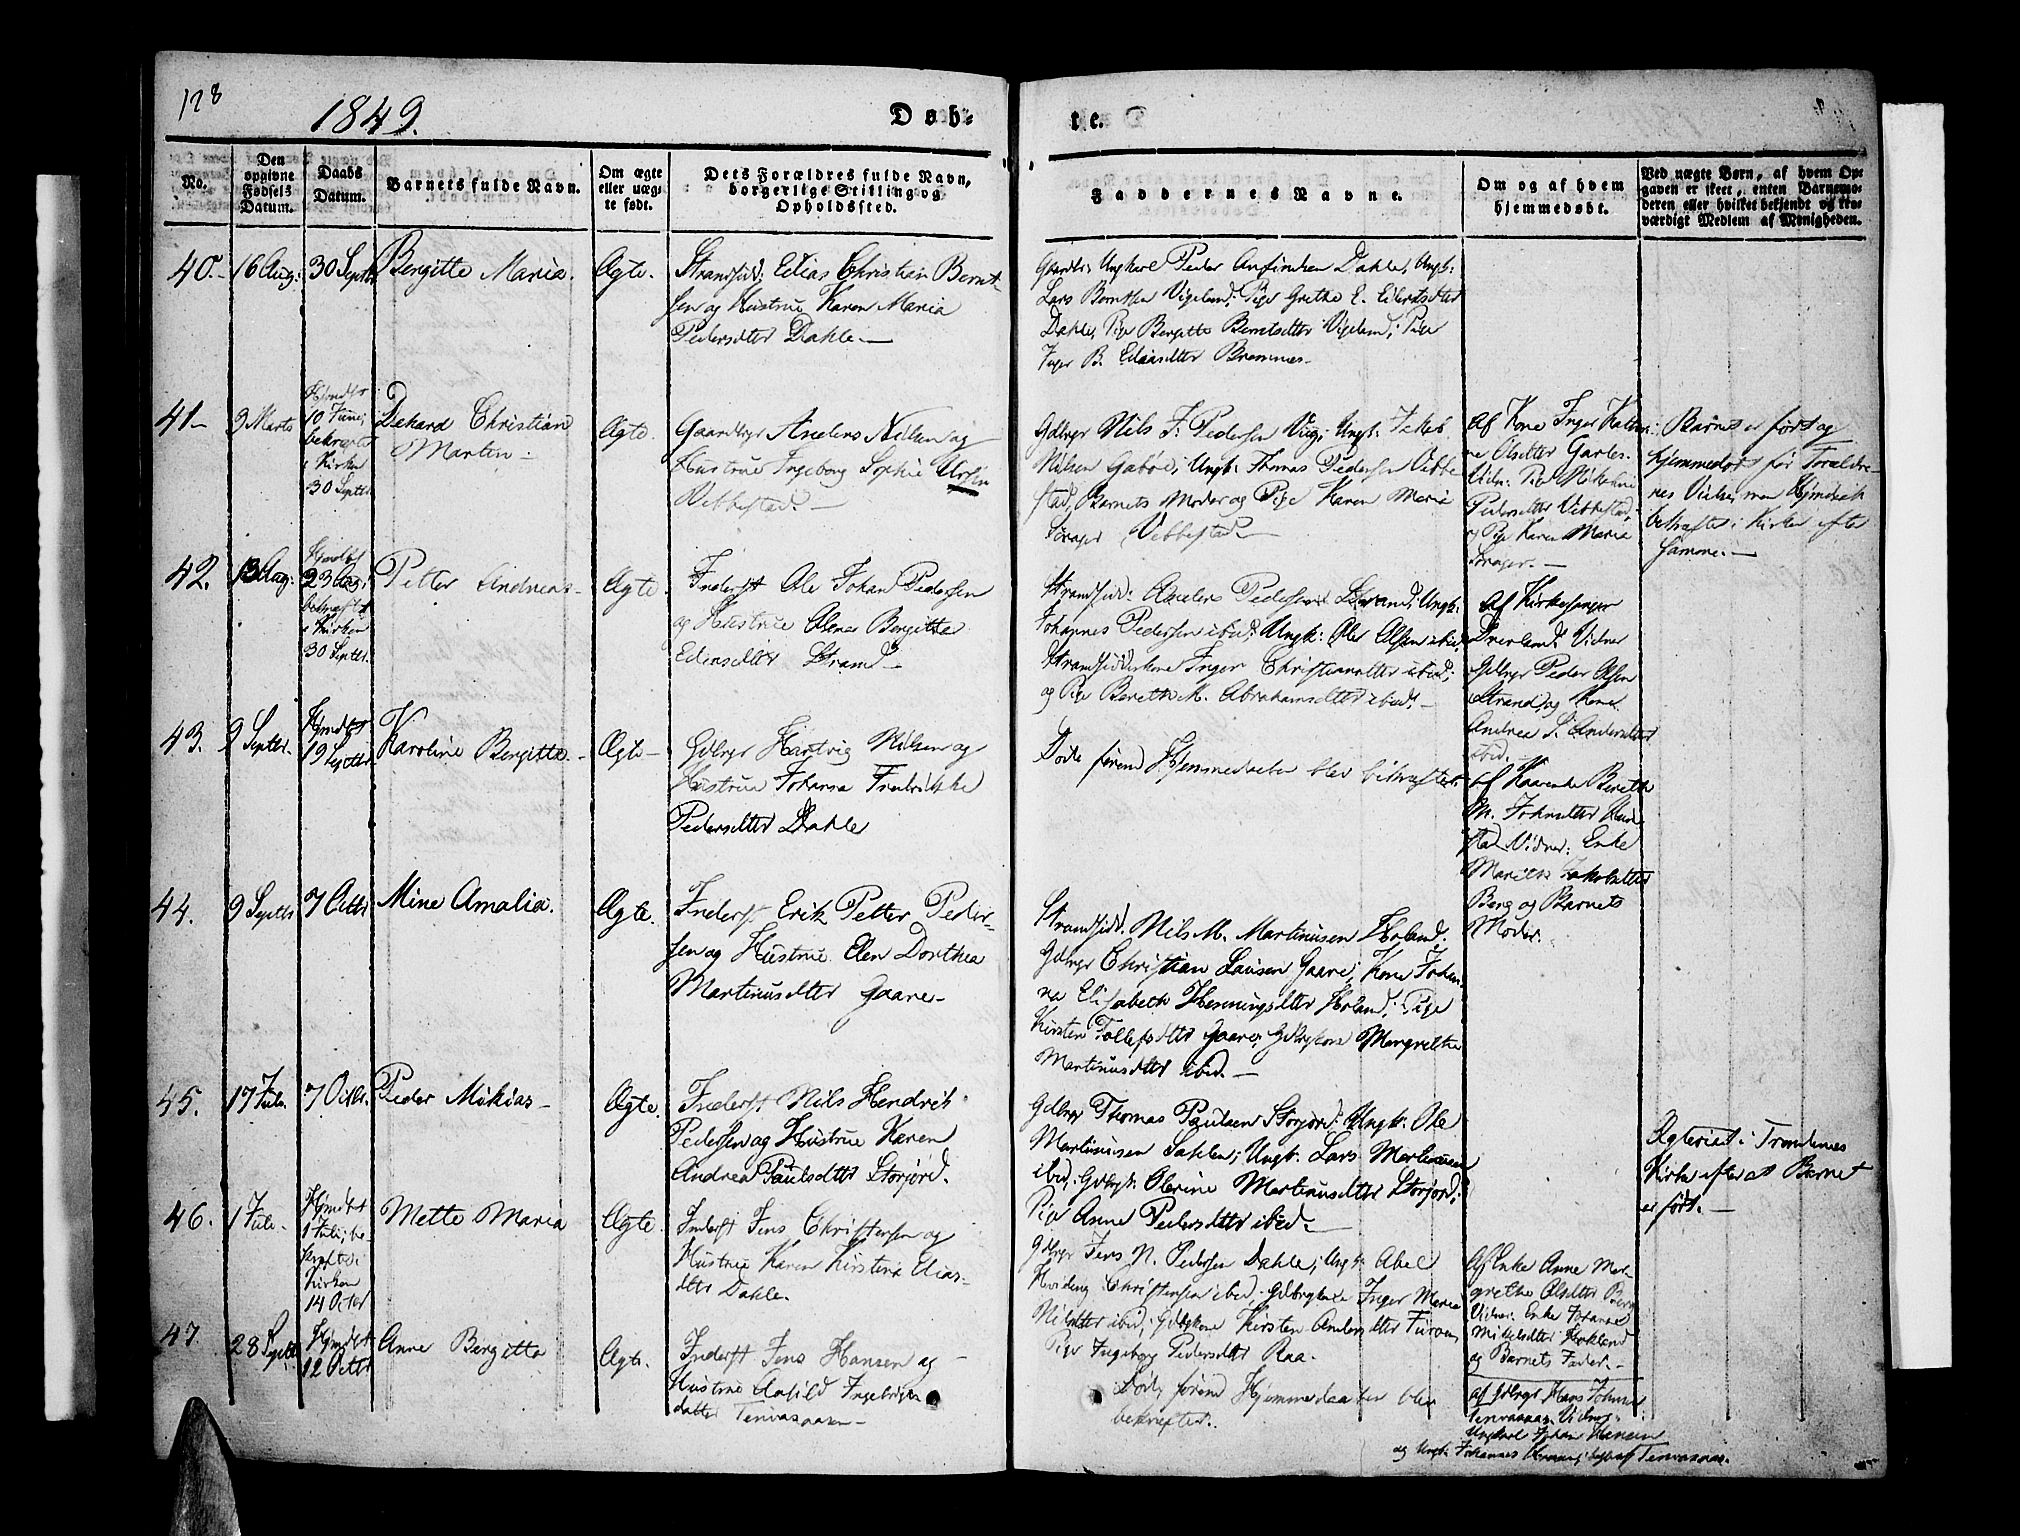 128
1849.
Døb-
te.
No.
Den
opgivne
Fødsels
Datum.
Daabs
Datum.
Barnets fulde Navn.
Om ægte
eller uæg-
te født.
Dets Forældres fulde Navn,
borgerlige Stilling og
Opholdssted.
Faddernes Navne.
Om og af hvem
hjemmedøbt.
Ved uægte Børn, af hvem Op-
gaven er skeet, enten Barnemo-
deren eller hvilket bekjendt og tro-
værdigt Medlem af Menigheden.
40.
16 Aug:
30 Septbr
Bergitte Maria.
Ægte.
Strandsid: Elias Christian Bernt-
sen og Hustrue Karen Maria
Pedersdtter Dahle.
Gaardbr: Ungkarl Peder Anfindsen Dahle, Ungk:
Lars Berntsen Vigeland; Pige Grethe E. Edisdtter
Dahle, Pige Bergitte Berntsdtter Vigeland; Pige
Inger B. Eliasdtter Bremnes.
41
3 Marts
Hjmdbt
10 Juni;
bekræftet
i Kirken
30 Septbr
Dehard Christian
Martin
Ægte.
Gaardbgr Anders Nilsen og
Hustrue Ingeborg Sophie Ursin
Vebbestad.
Gdbgr Nils J. Pedersen Vug; Ungk: Jakob
Nilsen Gaboe; Ungk: Thomas Pedersen Vebbe-
stad, Barnets Moder og Pige Karen Maria
Vebbestad
Af Kone Inger Kathri-
ne Olsdtter
Vidn: Pige Mikeline
Pedersdtter Vebbestad,
og Pige Karen Maria
Barnet er født og
hjemmedøbt før Forældre-
nes Vielse, men Hjmdaab
bekræftet i Kirken efter
samme.
42.
13 Aug:
Hjmdbt
23 Aug;
bekræftet
i Kirken
30 Septbr.
Petter Andreas
Ægte
Inderst Ole Johan Pedersen
og Hustrue Olena Bergitte
Edisdtter Strand
Strandsid: Anders Pedersen Strand; Ungk:
Johannes Pedersen ibid; Ungk: Ole Olsen ibid,
Strandsidderkone Inger Christiansdtter ibid;
og Pige Bereth M. Abrahamsdtter ibid.
Af Kirkesanger
Vidner
Gdbgr Peder Olsen
Strand, og Kone
Andrea S. Andersdtter
ibid.
43.
9 Septbr.
Hjmdbt
19 Septbr
Karoline Bergitte
Ægte
Gdbgr Hartvig Nilsen og
Hustrue Johana Fredrikke
Pedersdtter Dahle
Døde førend Hjemmedaaben blev bekræftet.
Af Kaarende Bereth
M. Johnsdtter
Vidner: Enke
Mareth Jakobsdtter
Berg og Barnets
Moder.
44.
9 Septbr
7 Octbr
Mine Amalia.
Ægte.
Inderst Erik Petter Peder-
sen og Hustrue Elen Dorthea
Martinusdtter Gaare
Strandsid. Nils M. Martinusen Holand;
Gdbgr Christian Larsen Gaare; Kone Johan-
na Elisabeth Henningsdtter Holand; Pige
Kirsten Tollefsdtter Gaare; Gdbgkone Margrethe
Martinusdtter ibid.
45.
17 Juli.
7 Octbr.
Peder Mikias
Ægte.
Inderst Nils Hendrik
Pedersen og Hustrue Karen
Andrea Paulsdtter Storjord.
Gdbgr Thomas Paulsen Storjord: Ungk: Ole
Martinusen Dahlen; Ungk: Lars Martinusen
ibid; Gdbgk: Olerine Martinusdtter Storjord;
Pige Anne Pedersdtter ibid.
Ægteviet i Trondenes
Kirke efter at Barnet
er født.
46.
1 Juli
Hjmdbt
1 Juli; be-
kræftet i
Kirken
14 Octbr
Mette Maria
Ægte
Inderst Jens Christensen og
Hustrue Karen Kirstena Elias-
dtter Dahle.
Gdbgr Jens N. Pedersen Dahle; Ungk: Abel
Hveding Christensen ibid; Gdbrgkone Inger Maria
Nilsdtter ibid; Gdbgkone Kirsten Andersdtter
Pige Ingeborg Pedersdtter Raa.
Af Enke Anne Mar-
grethe Olsdtter Berg
Vidner: Enke Johanne
Mikelsdtter Hokland
og Barnets Fader.
47.
28 Septbr
Hjmdbt
12 Octbr
Anne Bergitta
Ægte.
Inderst Jens Hansen og
Hustrue
datter Tenvasaasen
Døde førend Hjemmedaaben blev
bekræftet.
af Gdbgr Hans Johns
Tenvasaas. Vidner
Ungkarl Johan Hansen
og Ungk: Johannes